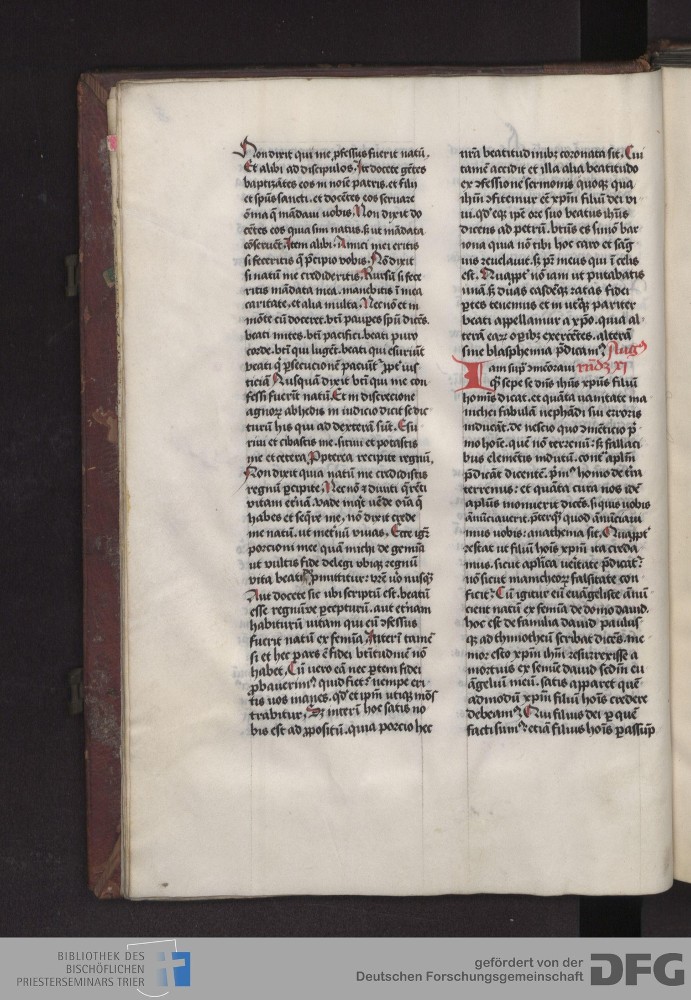 Non dixit qui me ꝓfessus fuerit natū.
Et alibi ad discipulos. Ite docete gētes
baptizātes eos in noīe patris. et filii
et spūs sancti. et docētes eos seruare
om̄ia q̄ mādaui uobis. Non dixit do
cētes eos quia sim natus. sꝫ ut mādata
ꝯseruēt. Item alibi. Amici mei eritis
si feceritis q̄ p̄cipio vobis. Nō dixit
si natū me credideritis. Rursū si fece
ritis mādata mea. manebitis ī mea
caritate. et alia multa. Necnō et in
mōte cū doceret. btī paupes spū dicēs.
beati mites. btī pacifici. beati puro
corde. btī qui lugēt. beati qui esuriūt
beati q̄ ꝑsecucionē paciūt᷑ ꝓpt᷑ ius
ticiā. Nusquā dixit btī qui me con
fessi fuerīt natū. Et in discrecione
agnorꝝ ab hedis in iudicio dicit se dic
turū his qui ad dexterā sūt. Esu
riui et cibastis me. sitiui et potastis
me et cetera. Ꝓpterea recipite regnū.
Non dixit quia natū me credidistis
regnū ꝑcipite. Necnō ⁊ diuiti q̄rēti
vitam et᷑nā. vade inq̇t vēde oīa q̄
habes et seq̄re me, nō dixit crede
me natū. ut inet᷑nū viuas. Ecce igr̄
porcioni mee quā michi de gemīa
ut vultis fide delegi vbiqꝫ regnū
vita beati ꝓmittitur. vr̄e u̇o nusqꝫ
Aut docete sic vbi scriptū est. beatū
esse regnūve ꝑcepturū. aut et᷑nam
habiturū vitam qui eū ꝯfessus
fuerit natū ex femīa. Interī tamē
si et hec pars ē fidei btītudinē nō
habet. Cū vero eā nec ꝑtem fidei
ꝓbauerim᷒ quid fiet? nempe eri
tis uos inanes. qd̓ et ipm̄ utiqꝫ mōs
trabitur. Sꝫ interī hoc satis no
bis est ad ꝓpositū. quia porcio hec
nr̄a beatitudinibꝫ coronata sit. Cui
tamē accidit et illa alia beatitudo
ex ꝯfessione sermonis quoqꝫ quia
ihm̄ ꝯfitemur eē xpm̄ filiū dei vi
ui. qd̓ eqꝫ ipē ore suo beatus ihūs
dicens ad petrū. btūs es simō bar
iona quia nō tibi hoc caro et sāg
uis reuelauit. sꝫ pr̄ meus qui ī celis
est. Quapp̄t᷑ nō iam ut putabatis
unā. sꝫ duas easdēqꝫ ratas fidei
ꝑtes tenemus et in utˢqꝫ pariter
beati appellamur a xp̄o. quia al
terā earꝝ oꝑibꝫ exercētes. alterā
sine blasphemia p̄dicam᷒ Aug᷒
Iam sup̄ ꝯmēoraui
qͣ sepe se dn̄s ihūs xpūs filiū
homīs dicat. et quāta uanitate ma
nichei fabulā nephādi sui erroris
inducāt. de nescio quo ꝯmēticio p̄
mo hoīe. quē nō terrenū. sꝫ fallaci
bus elemētis indutū. cont᷑ aplm̄
p̄dicāt dicentē. p̄m᷒ homo de t᷑ra
terrenus. et quāta cura nos idē
aplūs monuerit dicēs. si quis uobis
ānūciauerit. preterq̄ quod ānūciaui
mus uobis: anathema sit. Quapp̄t᷑
restat ut filiū hoīs xpm̄ ita creda
mus. sicut aplīca ueītate p̄dicat᷑
nō sicut manicheorꝝ falsitate con
ficit᷑. Cū igitur eū euāgeliste ānū
cient natū ex femīa de domo dauid.
hoc est de familia dauid paulusqꝫ
qꝫ ad thimotheū scribat dicēs. me
mor esto xpm̄ ihm̄ resurrexisse a
mortuis ex semīe dauid sedm̄ eu
āgeliū meū. satis apparet quē
admodū xpm̄ filiū hoīs credere
debeam᷒. Qui filius dei ꝑ quē
facti sum᷒ etiā filius hoīs ꝑ assūp
BIBLIOTHEK DES
BISCHÖFLICHEN
PRIESTERSEMINARS TRIER
gefördert von der
Deutschen Forschungsgemeinschaft
DFG